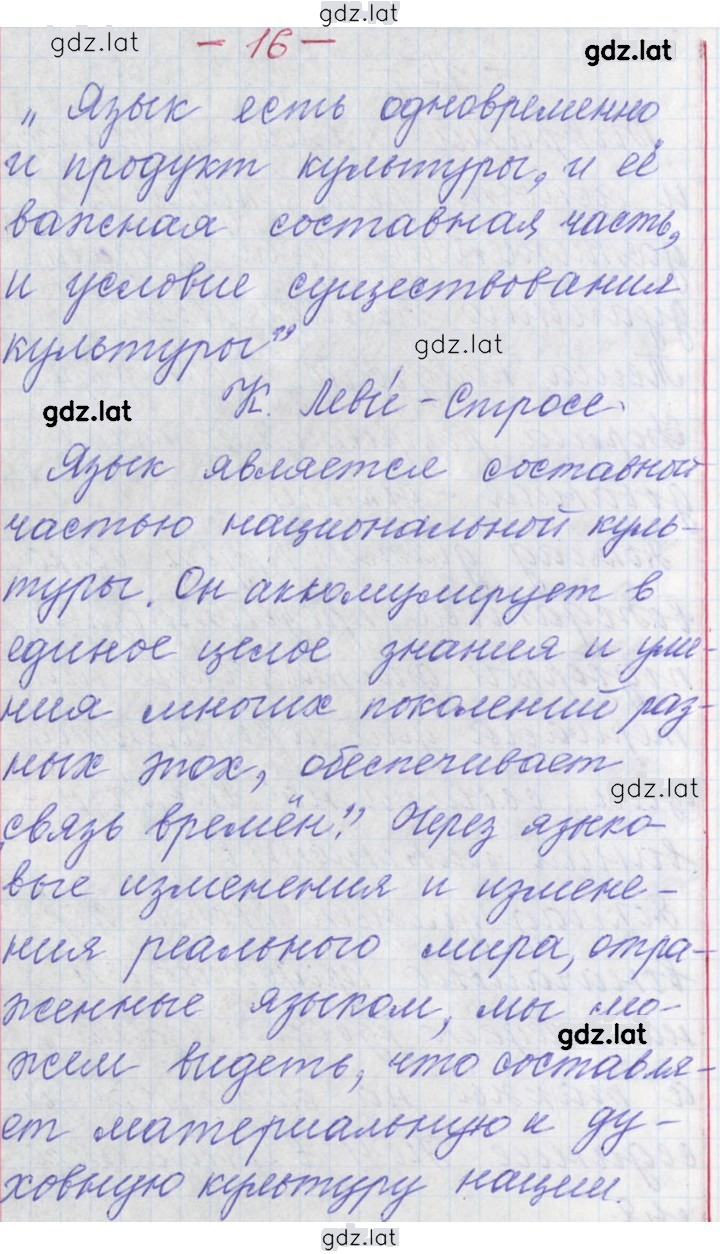 gdz.lat
gdz.lat
gdz.lat
- 16 -
„Язык есть одновременно
и продукт культуры, и её
важная составная часть,
и условие существования
культуры”
gdz.lat
К. Леви́-Стросс.
gdz.lat
Язык является составной
частью национальной куль-
туры. Он аккомулирует в
единое целое знания и уме-
ния многих поколений раз-
ных эпох, обеспечивает
gdz.lat
„связь времён”. Через языко-
вые изменения и измене-
ния реального мира, отра-
женные языком, мы мо-
gdz.lat
жем видеть, что составля-
ет материальную и ду-
ховную культуру нации.
gdz.lat